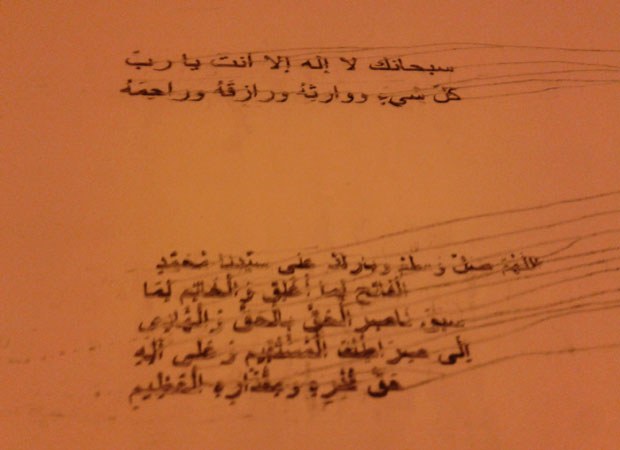 سبحانك لا إله إلا أنت يا ربّ
كلّ شيءٍ ووارثهُ ورازقَهُ وراحِمَهُ
اللّهُمّ صلّ وسلّم وبارك على سيّدِنا مُحَمّدٍ
الْفَاتِحِ لِمَا أُغْلِقَ وَالْخَاتِمِ لِمَا
سبق، ناصِرِ الْحَقِّ بِالْحَقِّ وَالْهَادِي
إِلَى صِرَاطِكَ الْمُسْتَقِيمِ وَعَلَى آلِهِ
حَقَّ قَدْرِهِ وَمِقْدَارِهِ الْعَظِيمِ